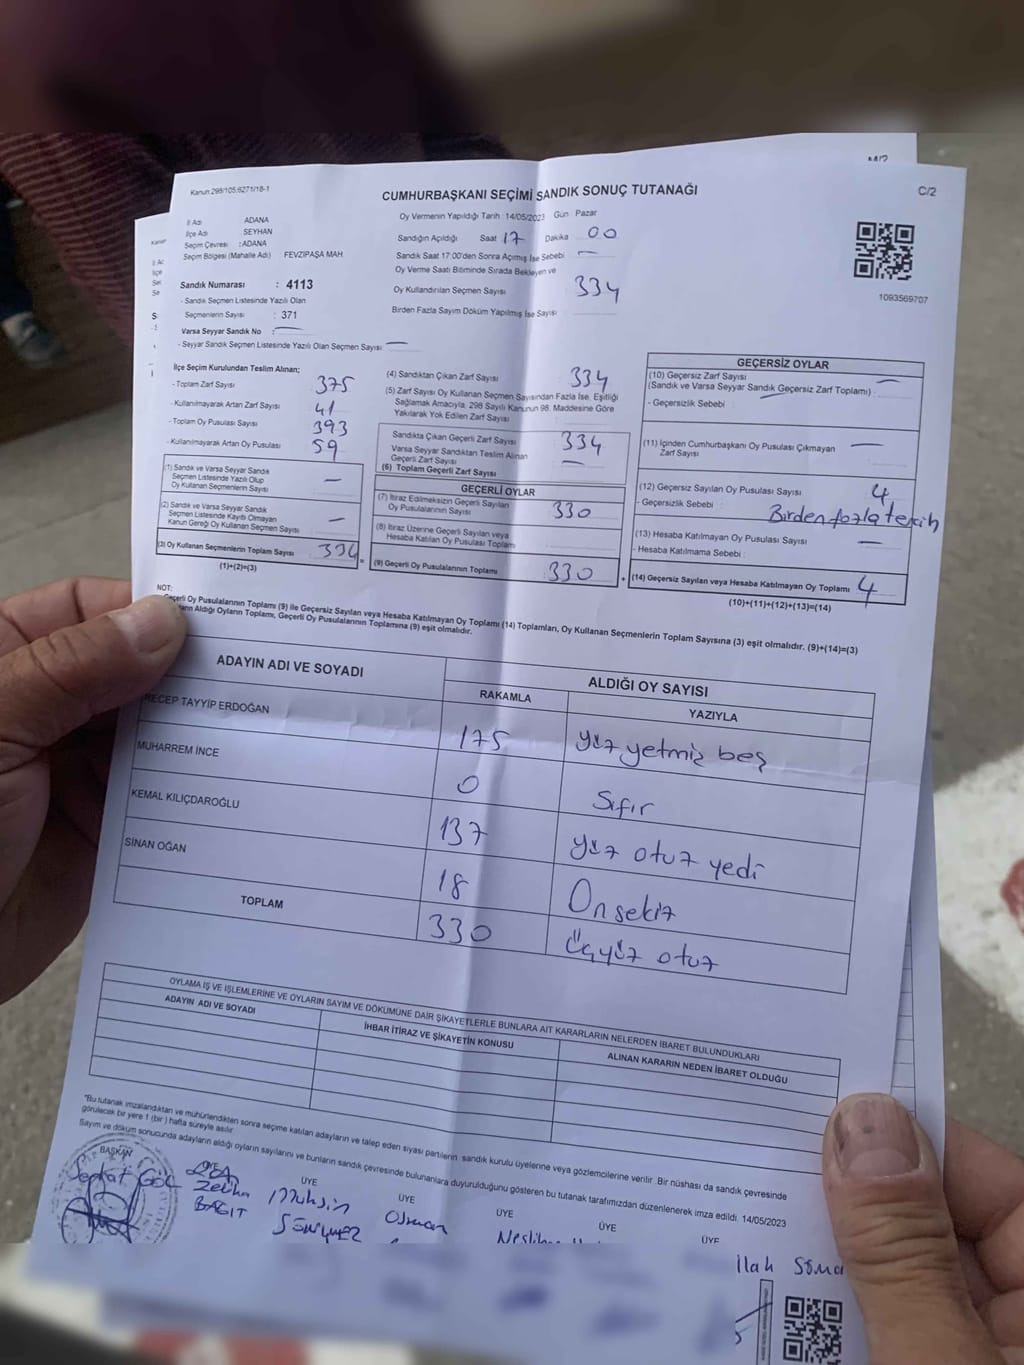 M/2
Kanun:298/105;6271/18-1
CUMHURBAŞKANI SEÇİMİ SANDIK SONUÇ TUTANAĞI
C/2
İl Adı ADANA
İlçe Adı SEYHAN
Seçim Çevresi : ADANA
Seçim Bölgesi (Mahalle Adı) FEVZİPAŞA MAH.
Sandık Numarası : 4113
- Sandık Seçmen Listesinde Yazılı Olan
Seçmenlerin Sayısı : 371
Varsa Seyyar Sandık No : —
- Seyyar Sandık Seçmen Listesinde Yazılı Olan Seçmen Sayısı —
Oy Vermenin Yapıldığı Tarih : 14/05/2023 Gün : Pazar
Sandığın Açıldığı Saat 17 Dakika 00
Sandık Saat 17:00'den Sonra Açılmış İse Sebebi —
Oy Verme Saati Bitiminde Sırada Bekleyen ve
Oy Kullandırılan Seçmen Sayısı 334
Birden Fazla Sayım Döküm Yapılmış İse Sayısı
1093569707
İlçe Seçim Kurulundan Teslim Alınan;
- Toplam Zarf Sayısı 375
- Kullanılmayarak Artan Zarf Sayısı 41
- Toplam Oy Pusulası Sayısı 393
- Kullanılmayarak Artan Oy Pusulası 59
(1) Sandık ve Varsa Seyyar Sandık
Seçmen Listesinde Yazılı Olup
Oy Kullanan Seçmenlerin Sayısı —
(2) Sandık ve Varsa Seyyar Sandık
Seçmen Listesinde Kayıtlı Olmayan
Kanun Gereği Oy Kullanan Seçmen Sayısı —
(3) Oy Kullanan Seçmenlerin Toplam Sayısı 334
(1)+(2)=(3)
(4) Sandıktan Çıkan Zarf Sayısı 334
(5) Zarf Sayısı Oy Kullanan Seçmen Sayısından Fazla İse, Eşitliği
Sağlamak Amacıyla, 298 Sayılı Kanunun 98. Maddesine Göre
Yakılarak Yok Edilen Zarf Sayısı
Sandıkta Çıkan Geçerli Zarf Sayısı 334
Varsa Seyyar Sandıktan Teslim Alınan
Geçerli Zarf Sayısı —
(6) Toplam Geçerli Zarf Sayısı
GEÇERLİ OYLAR
(7) İtiraz Edilmeksizin Geçerli Sayılan
Oy Pusulalarının Sayısı 330
(8) İtiraz Üzerine Geçerli Sayılan veya
Hesaba Katılan Oy Pusulası Toplam
(9) Geçerli Oy Pusulalarının Toplamı 330
GEÇERSİZ OYLAR
(10) Geçersiz Zarf Sayısı —
(Sandık ve Varsa Seyyar Sandık Geçersiz Zarf Toplamı)
- Geçersizlik Sebebi :
(11) İçinden Cumhurbaşkanı Oy Pusulası Çıkmayan
Zarf Sayısı —
(12) Geçersiz Sayılan Oy Pusulası Sayısı 4
- Geçersizlik Sebebi : Birden fazla tercih
(13) Hesaba Katılmayan Oy Pusulası Sayısı —
- Hesaba Katılmama Sebebi :
(14) Geçersiz Sayılan veya Hesaba Katılmayan Oy Toplamı 4
(10)+(11)+(12)+(13)=(14)
NOT:
Geçerli Oy Pusulalarının Toplamı (9) ile Geçersiz Sayılan veya Hesaba Katılmayan Oy Toplamı (14) Toplamları, Oy Kullanan Seçmenlerin Toplam Sayısına (3) eşit olmalıdır. (9)+(14)=(3)
Aldığı Oyların Toplamı, Geçerli Oy Pusulalarının Toplamına (9) eşit olmalıdır.
ADAYIN ADI VE SOYADI ALDIĞI OY SAYISI
RAKAMLA YAZIYLA
RECEP TAYYİP ERDOĞAN 175 yüz yetmiş beş
MUHARREM İNCE 0 Sıfır
KEMAL KILIÇDAROĞLU 137 yüz otuz yedi
SİNAN OĞAN 18 Onsekiz
TOPLAM 330 Üçyüz otuz
OYLAMA İŞ VE İŞLEMLERİNE VE OYLARIN SAYIM VE DÖKÜMÜNE DAİR ŞİKAYETLERLE BUNLARA AİT KARARLARIN NELERDEN İBARET BULUNDUKLARI
ADAYIN ADI VE SOYADI İHBAR İTİRAZ VE ŞİKAYETİN KONUSU ALINAN KARARIN NEDEN İBARET OLDUĞU
"Bu tutanak imzalandıktan ve mühürlendikten sonra seçime katılan adayların ve talep eden siyasi partilerin sandık kurulu üyelerine veya gözlemcilerine verilir. Bir nüshası da sandık çevresinde
görülecek bir yere 1 (bir) hafta süreyle asılır
Sayım ve döküm sonucunda adayların aldığı oyların sayılarını ve bunların sandık çevresinde bulunanlara duyurulduğunu gösteren bu tutanak tarafımızdan düzenlenerek imza edildi. 14/05/2023
BAŞKAN ÜYE ÜYE ÜYE ÜYE ÜYE
Göl Zeliha Muhsin Osman
BAĞIT SÖNMEZ